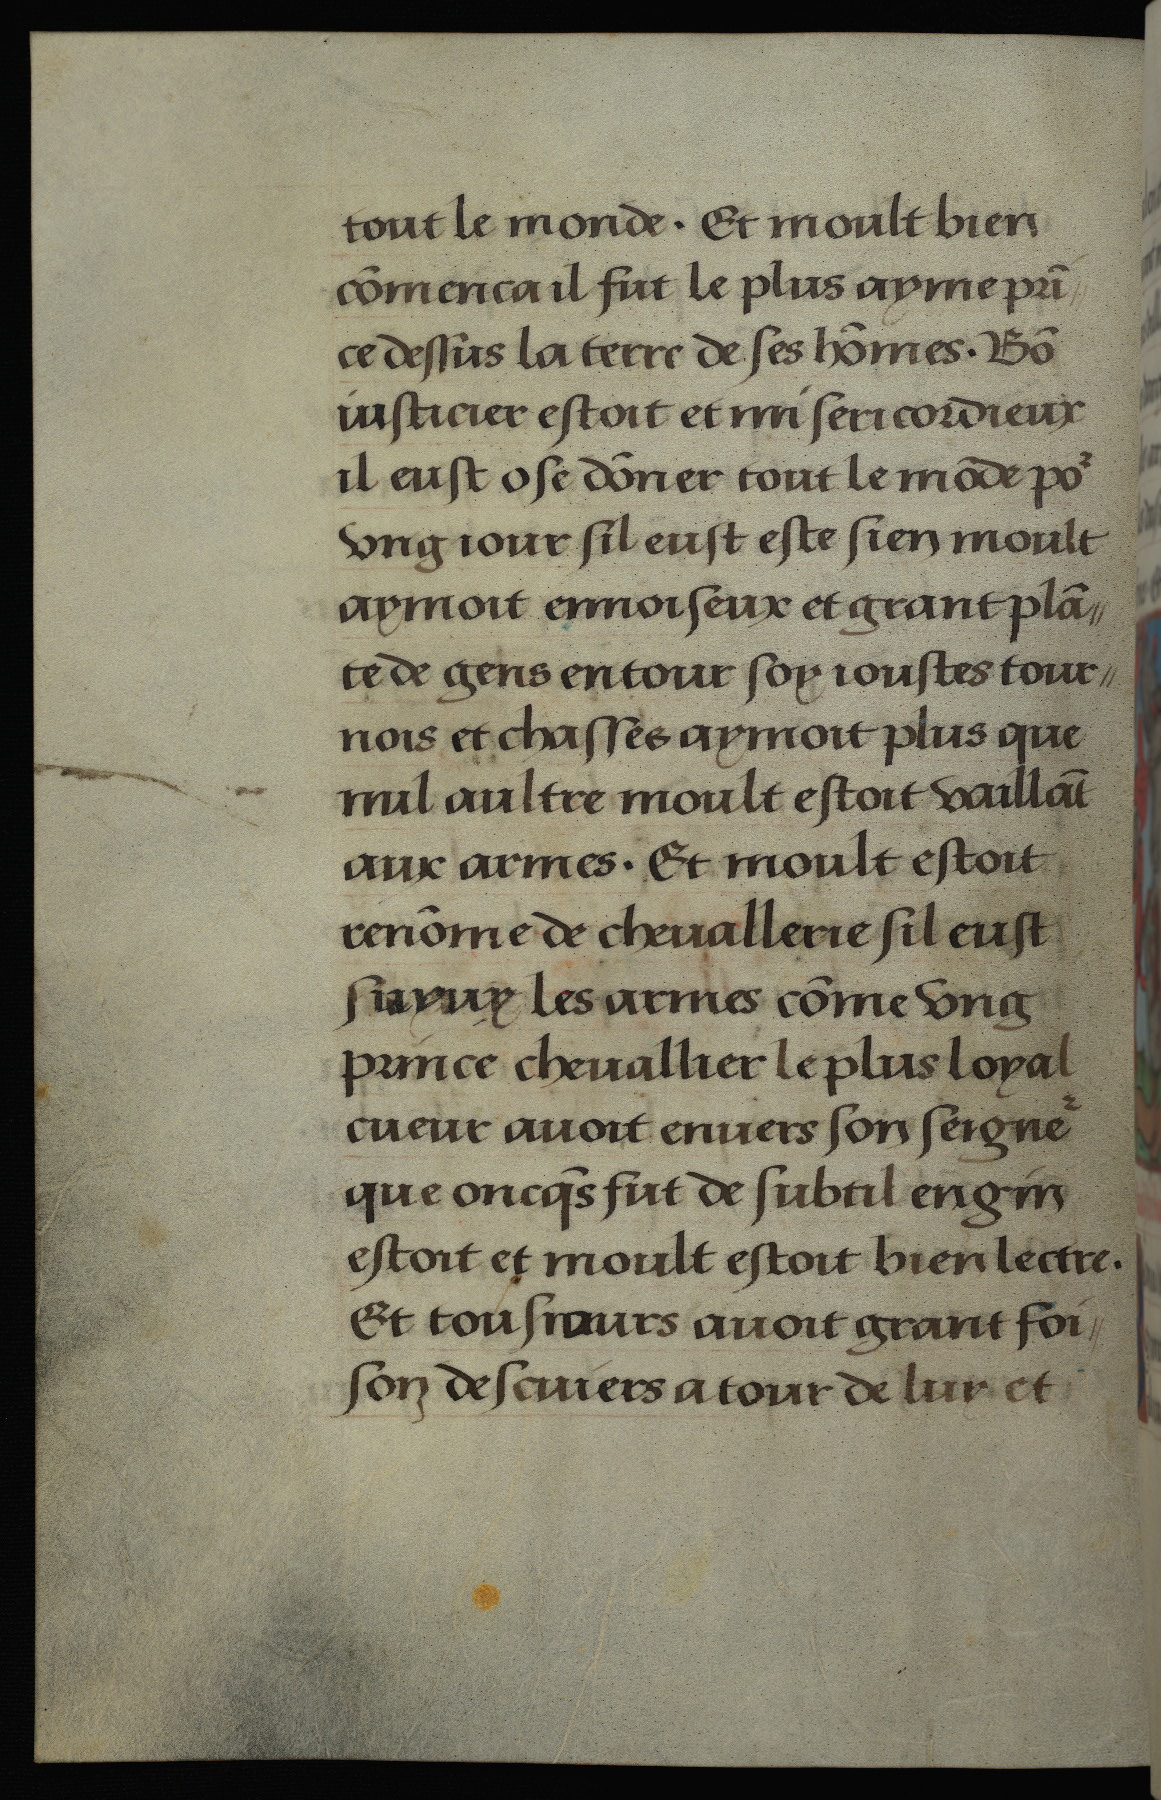 tout le monde. Et moult bien
cōmenca il fut le plus ayme prī//
ce dessus la terre de ses hōmes. Bō
iusticier estoit et misericordieux
il eust ose dōner tout le mōde poᷣ
vng iour sil eust este sien moult
aymoit ennoiseux et grant plā//
te de gens entour soy ioustes tour//
nois et chasses aymoit plus que
nul aultre moult estoit vaillāt
aux armes. Et moult estoit
renōme de cheuallerie sil eust
suyuy les armes cōme vng
prince cheuallier le plus loyal
cueur auoit enuers son seigneᷣ
que oncq̄s fut de subtil engin
estoit et moult estoit bien lectre.
Et tousiours auoit grant foi//
son descuiers a tour de luy et